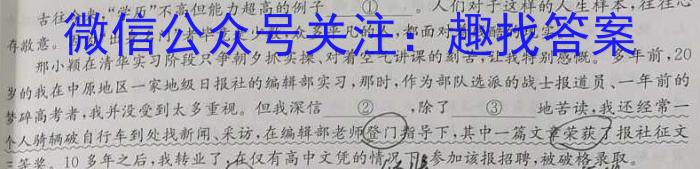 古往今来，“学历”不高但能力超高的例子 ① 。人们对于这样的人生样本，往往心
微信公众号关注：趣找答案
存敬意。
那小颖在清华实习阶段只争朝夕抓实操、对着空气讲课的刻苦，让我特别感慨。多年前，20
岁的我在中原地区一家地级日报社的编辑部实习，那时，作为部队选派的战士报道员、一年前的
梦碎高考者，我并没受到太多重视。但我深信 ② ，除了 ③ 地苦读，我还经常一
个人骑辆破自行车到处找新闻、采访，在编辑部老师登门指导下，其中一篇文章荣获了报社征文
三等奖。10多年之后，我转业了，在仅有高中文凭的情况下，参加该报招聘，被破格录取。